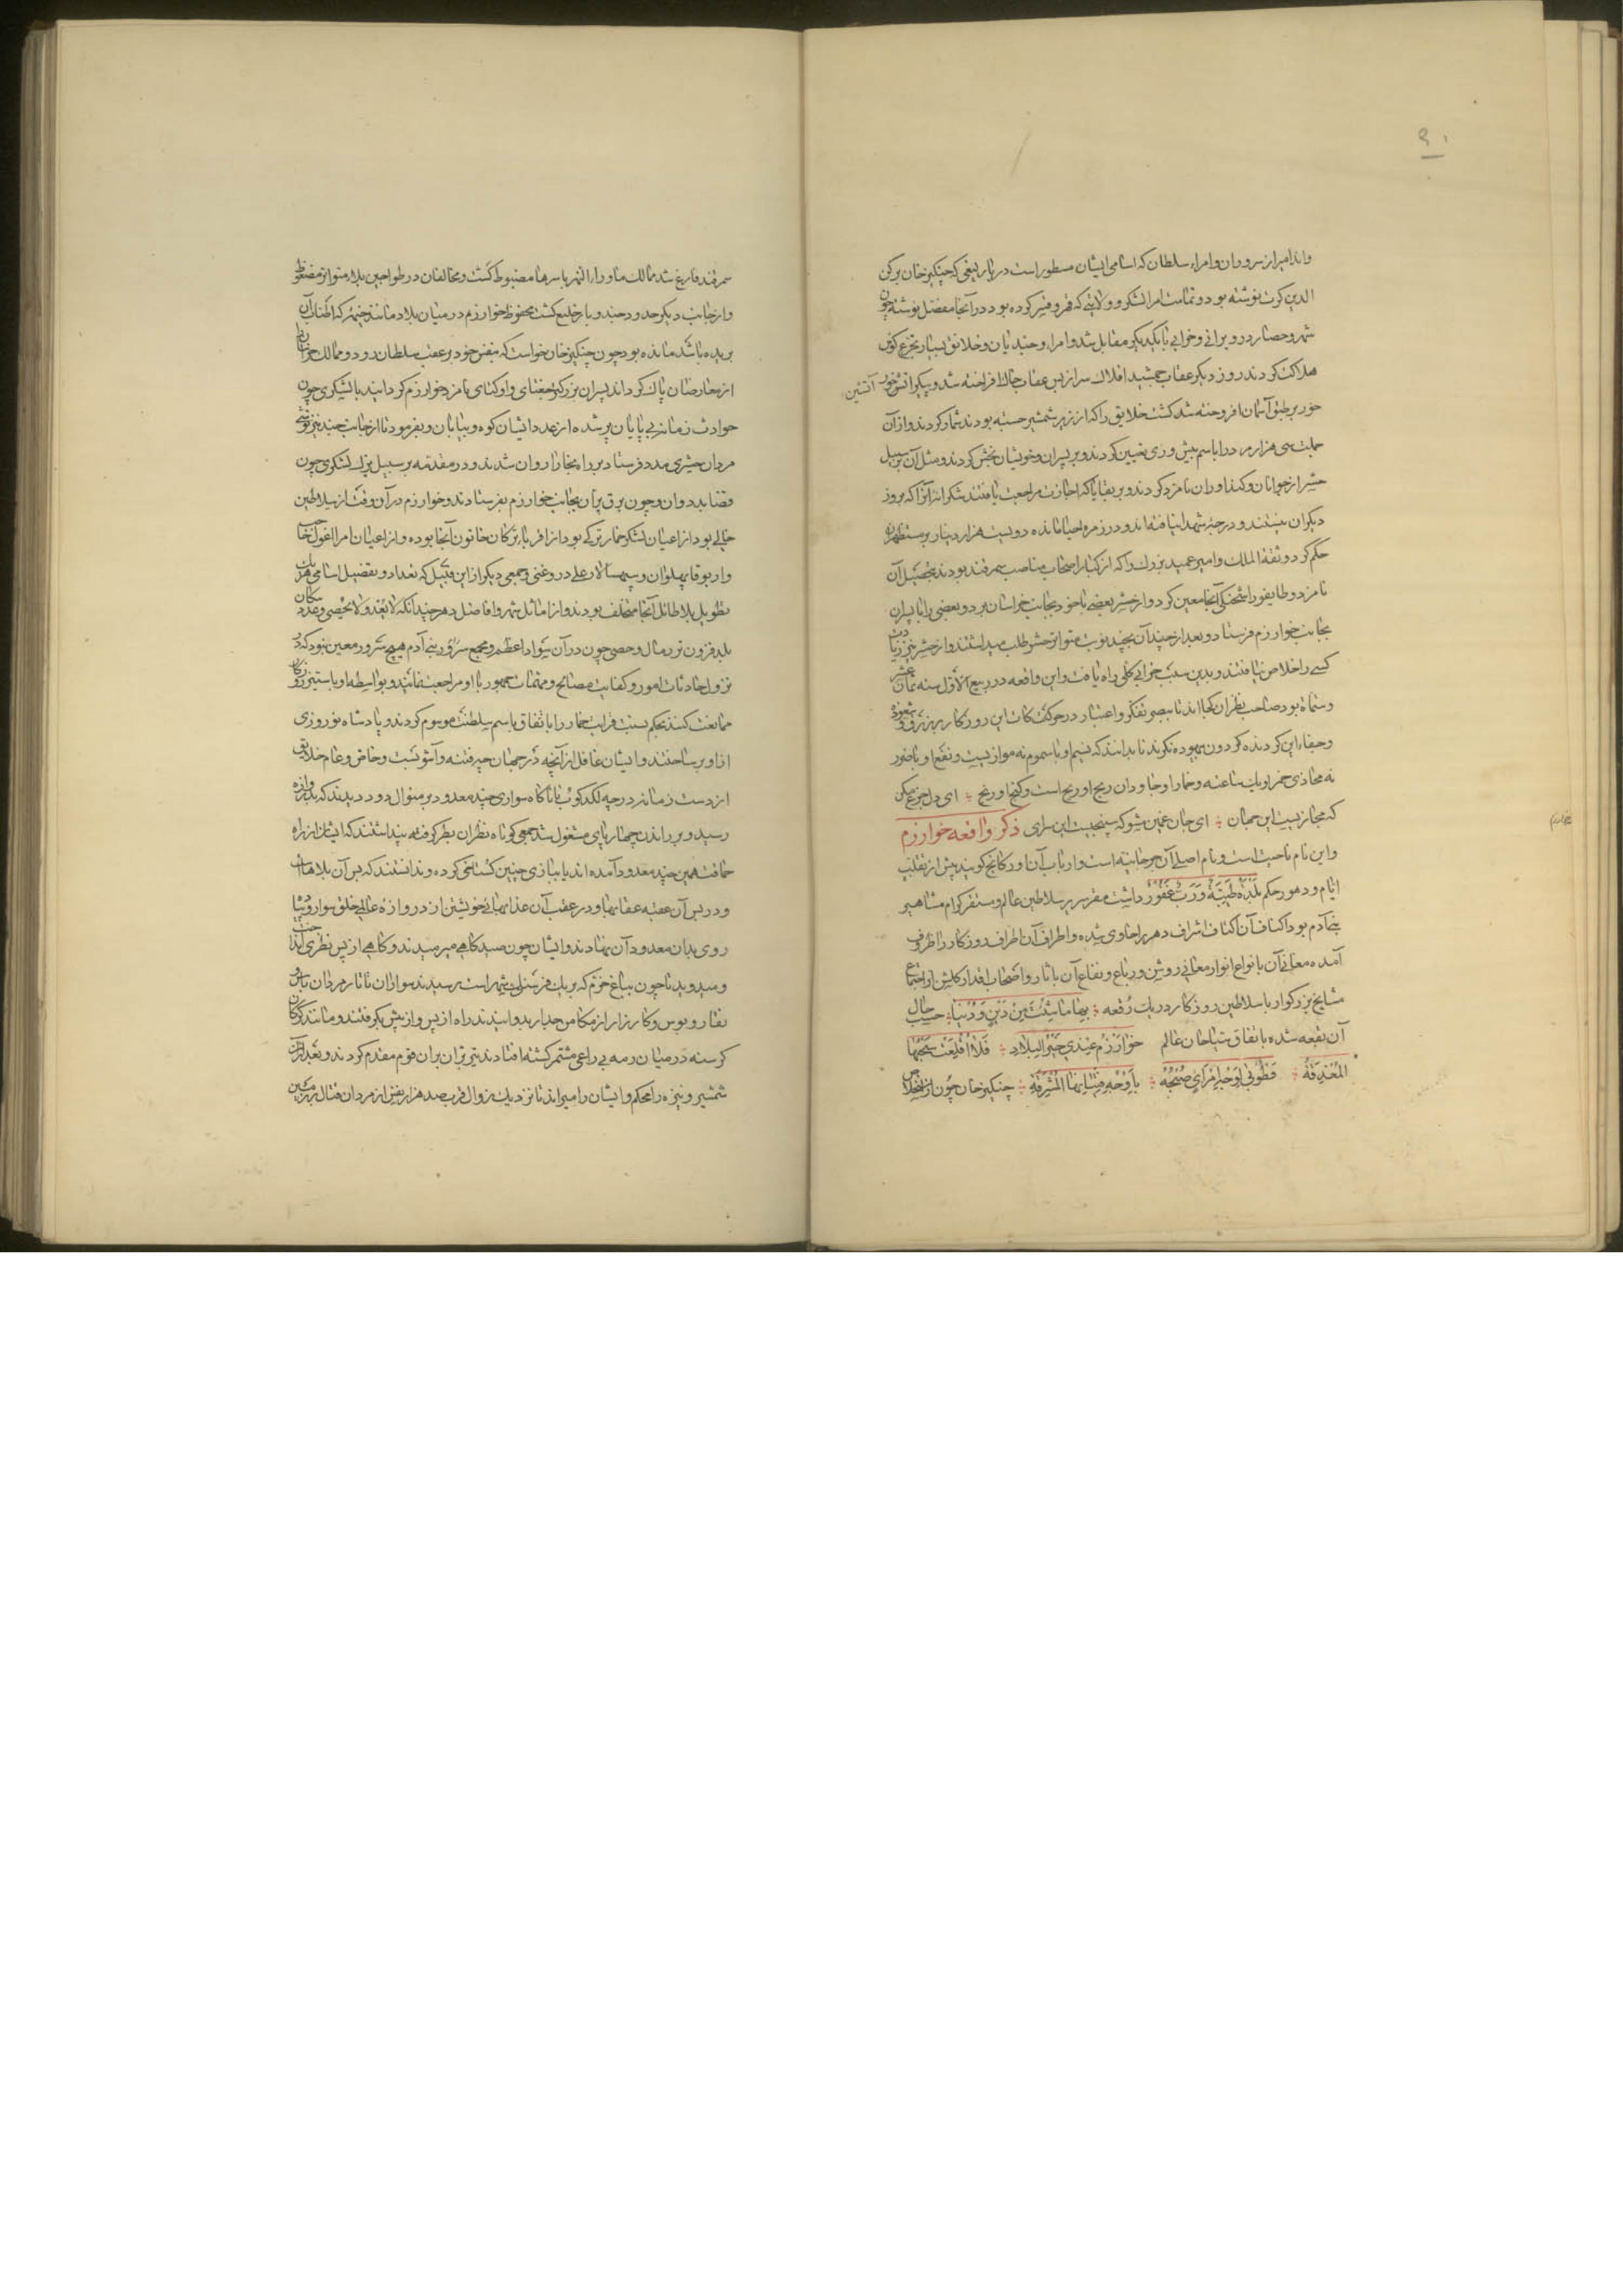 ۹۰
واند امیر از سروران و امراء سلطان که اسامی ایشان مسطور است در یارلیغی که چنکیز خان برکن
الدین کرت نوشته بود و تمامت امرا لشکر و ولایتی که قهر و قسر کرده بود در آنجا مفصل نوشته چون
شهر و حصار در ویرانی و خرابی با یکدیکر مقابل شد و امراء و جندیان و خلایق بسیار تجرع کؤس
هلاکت کردند روز دیکر عقاب جمشید افلاک سر از پس عقاب خاک افراخته شد و پیکر آتشین
خور بر طبق آسمان افروخته شد کشت خلایق را که از زیر شمشیر جسته بودند شمار کردند و از آن
جملت سی هزار مرد را باسم پیش‌وری تعیین کردند و بر پسران و خویشان بخش کردند و مثل آن بر سبیل
حشر از جوانان و کنداوران نامزد کردند و بر بقایا که اجازت مراجعت یافتند شکرانه آنرا که بروز
دیکران ننشستند و درجهٔ شهدا نیافته‌اند و در زمره احیا مانده دویست هزار دینار بر مستظهران
حکم کرد و ثقة الملک و امیر عمید بزرک را که از کبار اصحاب مناصب سمرقند بودند بتحصیل آن
نامزد و طایفه را شحنکی آنجا معین کرد و از حشر بعضی با خود بجانب خراسان برد و بعضی را با پسران
بجانب خوارزم فرستاد و بعد از چندان بچند نوبت متواتر حشر طلب میداشتند و از حشریها زیادت
کسی را خلاص نیافتند و بدین سبب خرابی کلی راه یافت و این واقعه در ربیع الاول سنه ثمان عشر
وستماة بود صاحب نظران کجااند تا ببصر تفکر و اعتبار در حرکت کات این روزکار پر زرق و شعوذه
و جفاء این کردنده کردون بیهوده نکرند تا بدانند که نسیم او با سموم نه موازیست و نفع او با ضرر
نه محاذی خمر او یک ساعته و خمار او جاودان ربح او ریح است و کنج او رنج ؛ ای دل جزع مکن
که مجازیست این جهان ؛ ای جان غمین مشو که سپنجیست این سرای ذکر واقعه خوارزم
و این نام ناحیت است و نام اصلی آن جرجانیه است و ارباب آن اورکانج کویند پیش از تقلب
ایام و دهور حکم بَلْدَةٌ طَیِّبَةٌ وَرَبٌّ غَفُورٌ داشت مقر سریر سلاطین عالم و مستقر کرام مشاهیر
بنی آدم بود اکناف آن اکناف اشراف دهر را حاوی شده و اطراف آن اطراف روزکار را ظروف
آمده معانی آن بانواع انوار معانی روشن و رباع و بقاع آن بآثار و اصحاب اقدار کلشن از اجتماع
مشایخ بزرکوار با سلاطین روزکار در یک رقعه ؛ بِها ما شِئْتَ مِنْ دِینٍ وَدُنْیا ؛ حسب حال
آن بقعه شده باتفاق سیاحان عالم خوارزم عندی خیر البلاد ؛ فلا اقلعت سحبها
المغدقة ؛ فطوبی لوجه امرئ صبحته ؛ باوجه فتیانها المشرقة ؛ چنکیز خان چون از استخلاص
سمرقند فارغ شد ممالک ماوراء النهر باسرها مضبوط کشت و مخالفان در طواحین بلاء متواتر مضغوط
و از جانب دیکر حدود جند و بارجلیغ کشت محفوظ خوارزم در میان بلاد مانند خیمهٔ که اطناب آن
بریده باشد مانده بود چون چنکیز خان خواست که بنفس خود بر عقب سلطان رود و ممالک خراسان را
از معارضان پاک کرداند پسران بزرکتر جغتای و اوکتای نامزد خوارزم کردانید با لشکری چون
حوادث زمانه بی پایان پر شده از عدد ایشان کوه و بیابان و بفرمود تا از جانب جند نیز توشی
مردان حشری مدد فرستاد بر راه بخارا روان شدند و در مقدمه بر سبیل یزک لشکری چون
قضا بد دوان و چون برق پران بجانب خوارزم بفرستادند و خوارزم در آن وقت از سلاطین
خالی بود از اعیان لشکر خمار ترکی بود از اقرباء ترکان خاتون آنجا بوده و از اعیان امرا اغول حاجب
و اربوقا پهلوان و سپهسالار علی دروغنی و جمعی دیکر از این قبیل که تعداد و تفصیل اسامی هر یک
تطویل بلا طائل آنجا متخلف بودند و از اماثل شهر و افاضل دهر چندانکه لا یعد و لا یحصی و عدد سکان
بلد فزون‌تر رمال و حصی چون در آن سواد اعظم و مجمع بنی آدم هیچ سرور معین نبود که در
نزول حادثات امور و کفایت مصالح و مهمات جمهور با او مراجعت نمایند و بواسطه او با ستیز روزکار
ممانعت کنند بحکم نسبت قرابت خمار را باتفاق باسم سلطنت موسوم کردند و پادشاه نوروزی
ازو بر ساختند و ایشان غافل از آنچه در جهان چه فتنه و آشوبست و خاص و عام خلایق
از دست زمانه در چه لکدکوب تا ناکاه سواری چند معدود بر منوال دود دیدند که بدروازه
رسید و بر راندن چهارپای مشغول شد جمعی کوتاه نظران بطر کرفته پنداشتند که ایشان از راه
حماقت همین چند معدود آمده‌اند یا ببازی چنین کستاخی کرده و ندانستند که پس آن بلاهاست
و در پس آن عقبه عقابها و در عقب آن عذابهای خویشتن از دروازه عالی خلق سوار و پیاده
روی بدان معدود آن نهادند و ایشان چون صید کاهی میرمیدند و کاهی از پس نظری می انداخت
و میدوید تا چون بباغ خرم که بر یک فرسنکی شهر است رسیدند سواران تاتار مردان باس و
نقار و بوس و کارزار از مکامن جدار بدوانیدند راه از پس و از پیش بکرفتند و مانند کرکان
کرسنه در میان رمه بی راعی مشمر کشته افتادند تیر پران بران قوم مقدم کردند و بعد از آن
شمشیر و نیزه را محکم و ایشان را میراند تا نزدیک زوال قرب صد هزار نفس از مردان قتال بر زمین